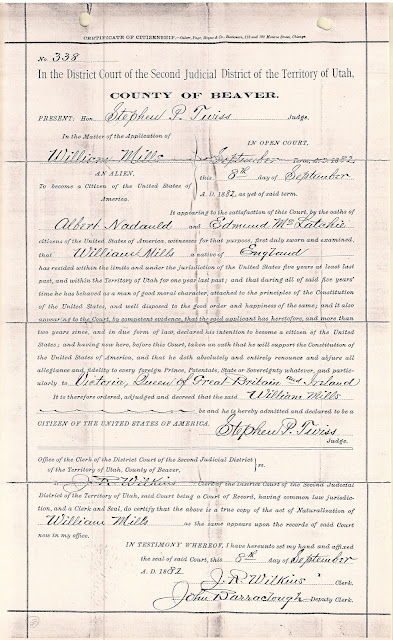 CERTIFICATE OF CITIZENSHIP.
No. 338
In the District Court of the Second Judicial District of the Territory of Utah,
COUNTY OF BEAVER.
PRESENT: Hon. Stephen P. Twiss Judge.
In the Matter of the Application of
William Mills
AN ALIEN,
To become a Citizen of the United States of
America.
IN OPEN COURT,
September Term, A.D. 1882,
this 8th day of September
A. D. 1882 as yet of said term.
It appearing to the satisfaction of this Court, by the oaths of
Albert Nadauld and Edmund Mc Latchie
citizens of the United States of America, witnesses for that purpose, first duly sworn and examined,
that William Mills a native of England
has resided within the limits and under the jurisdiction of the United States five years at least last
past, and within the Territory of Utah for one year last past; and that during all of said five years'
time he has behaved as a man of good moral character, attached to the principles of the Constitution
of the United States, and well disposed to the good order and happiness of the same; and it also
appearing to the Court, by competent evidence, that the said applicant has heretofore, and more than
two years since, and in due form of law, declared his intention to become a citizen of the United
States; and having now here, before this Court, taken an oath that he will support the Constitution of
the United States of America, and that he doth absolutely and entirely renounce and abjure all
allegiance and fidelity to every foreign Prince, Potentate, State or Sovereignty whatever, and partic-
ularly to Victoria, Queen of Great Britain and Ireland
It is therefore ordered, adjudged and decreed that the said William Mills
be and he is hereby admitted and declared to be a
CITIZEN OF THE UNITED STATES OF AMERICA.
Stephen P. Twiss
Judge.
Office of the Clerk of the District Court of the Second Judicial District
of the Territory of Utah, County of Beaver,
ss.
I, J. R. Wilkins Clerk of the District Court of the Second Judicial
District of the Territory of Utah, said Court being a Court of Record, having common law jurisdic-
tion, and a Clerk and Seal, do certify that the above is a true copy of the act of Naturalization of
William Mills as the same appears upon the records of said Court
now in my office.
IN TESTIMONY WHEREOF, I have hereunto set my hand and affixed
the seal of said Court, this 8th day of September
A. D. 1882
J. R. Wilkins Clerk.
John Barraclough Deputy Clerk.